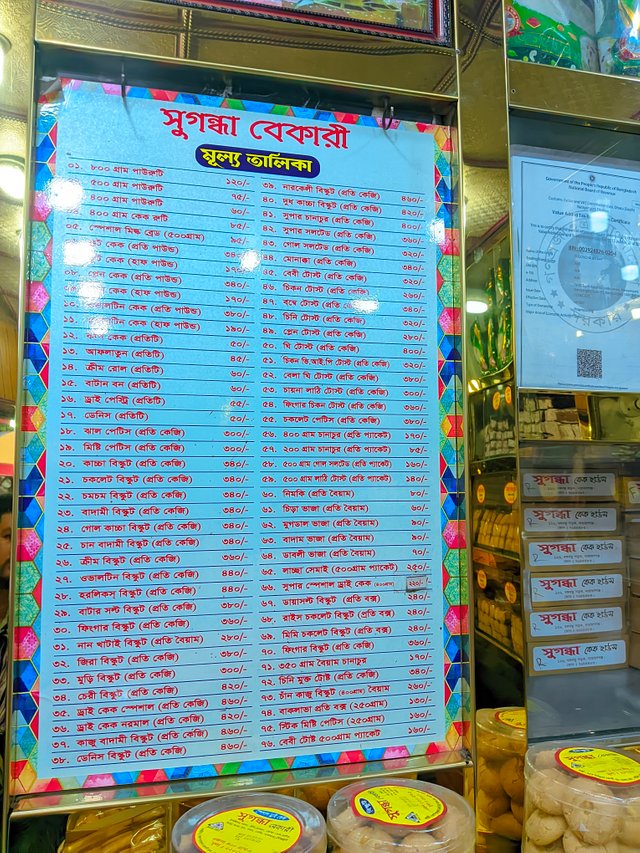 সুগন্ধা বেকারী
মূল্য তালিকা
০১. ৮০০ গ্রাম পাউরুটি ১২০/-
৫০০ গ্রাম পাউরুটি ৭৫/-
৪০০ গ্রাম পাউরুটি ৬০/-
০৪. ৪০০ গ্রাম কেক রুটি ৮৫/-
০৫. স্পেশাল মিল্ক ব্রেড (৫০০গ্রাম) ৯৫/-
কেক (প্রতি পাউন্ড) ৩৪০/-
কেক (হাফ পাউন্ড) ১৭০/-
০৮. প্লেন কেক (প্রতি পাউন্ড) ৩৪০/-
কেক (হাফ পাউন্ড) ১৭০/-
১০. ওভালটিন কেক (প্রতি পাউন্ড) ৩৮০/-
কেক (হাফ পাউন্ড) ১৯০/-
১২. (প্রতিটি) ৫০/-
১৩. আফলাতুন (প্রতিটি) ৪৫/-
১৪. ক্রীম রোল (প্রতিটি) ৬০/-
১৫. বাটান বন (প্রতিটি) ৬০/-
১৬. ড্রাই পেস্ট্রি (প্রতিটি) ৫৫/-
১৭. ডেনিস (প্রতিটি) ৫০/-
১৮. ঝাল পেটিস (প্রতি কেজি) ৩০০/-
১৯. মিষ্টি পেটিস (প্রতি কেজি) ৩০০/-
২০. কাচ্চা বিস্কুট (প্রতি কেজি) ৩৪০/-
২১. চকলেট বিস্কুট (প্রতি কেজি) ৩৪০/-
২২. চমচম বিস্কুট (প্রতি কেজি) ৩৪০/-
২৩. বাদামী বিস্কুট (প্রতি কেজি) ৩৪০/-
২৪. গোল কাচ্চা বিস্কুট (প্রতি কেজি) ৩৪০/-
২৫. চান বাদামী বিস্কুট (প্রতি কেজি) ৩৪০/-
২৬. ক্রীম বিস্কুট (প্রতি কেজি) ৩৬০/-
২৭. ওভালটিন বিস্কুট (প্রতি কেজি) ৪৪০/-
২৮. হরলিকস্ বিস্কুট (প্রতি কেজি) ৪৪০/-
২৯. বাটার সল্ট বিস্কুট (প্রতি কেজি) ৩৮০/-
৩০. ফিংগার বিস্কুট (প্রতি কেজি) ৩৬০/-
৩১. নান খাটাই বিস্কুট (প্রতি বৈয়াম) ২৮০/-
৩২. জিরা বিস্কুট (প্রতি কেজি) ৩৮০/-
৩৩. মুড়ি বিস্কুট (প্রতি কেজি) ৩০০/-
৩৪. চেরী বিস্কুট (প্রতি কেজি) ৪২০/-
৩৫. ড্রাই কেক স্পেশাল (প্রতি কেজি) ৪৬০/-
৩৬. ড্রাই কেক নরমাল (প্রতি কেজি) ৪২০/-
৩৭. কাজু বাদামী বিস্কুট (প্রতি কেজি) ৪৬০/-
৩৮. ডেনিস বিস্কুট (প্রতি কেজি) ৪৬০/-
৩৯. নারকেলী বিস্কুট (প্রতি কেজি) ৪৬০/-
৪০. দুধ কাচ্চা বিস্কুট (প্রতি কেজি) ৪২০/-
৪১. সুপার চানাচুর (প্রতি কেজি) ৪০০/-
৪২. সুপার সলটেড (প্রতি কেজি) ৩৬০/-
৪৩. গোল সলটেড (প্রতি কেজি) ৩২০/-
৪৪. মোনাক্কা (প্রতি কেজি) ৩৪০/-
৪৫. বেবী টোস্ট (প্রতি কেজি) ৩২০/-
৪৬. চিকন টোস্ট (প্রতি কেজি) ২৬০/-
৪৭. বম্বে টোস্ট (প্রতি কেজি) ৩৪০/-
৪৮. চিনি টোস্ট (প্রতি কেজি) ৩২০/-
৪৯. প্লেন টোস্ট (প্রতি কেজি) ২৮০/-
৫০. ঘি টোস্ট (প্রতি কেজি) ৪০০/-
৫১. চিকন ভি.আই.পি টোস্ট (প্রতি কেজি) ৩২০/-
৫২. বেলা ঘি টোস্ট (প্রতি কেজি) ৩৮০/-
৫৩. চায়না লাঠি টোস্ট (প্রতি কেজি) ৩০০/-
৫৪. ফিংগার চিকন টোস্ট (প্রতি কেজি) ৩৬০/-
৫৫. চকলেট পেটিস (প্রতি কেজি) ৩৮০/-
৫৬. ৪০০ গ্রাম চানাচুর (প্রতি প্যাকেট) ১৭০/-
৫৭. ২০০ গ্রাম চানাচুর (প্রতি প্যাকেট) ৮৫/-
৫৮. ৫০০ গ্রাম গোল সলটেড (প্রতি প্যাকেট) ১৬০/-
৫৯. ৫০০ গ্রাম লাঠি টোস্ট (প্রতি প্যাকেট) ১৪০/-
৬০. নিমকি (প্রতি বৈয়াম) ৮০/-
৬১. চিড়া ভাজা (প্রতি বৈয়াম) ৬০/-
৬২. মুগডাল ভাজা (প্রতি বৈয়াম) ৯০/-
৬৩. বাদাম ভাজা (প্রতি বৈয়াম) ৯০/-
৬৪. ডাবলী ভাজা (প্রতি বৈয়াম) ৭০/-
৬৫. লাচ্ছা সেমাই (৫০০গ্রাম প্যাকেট) ২৫০/-
৬৬. সুপার স্পেশাল ড্রাই কেক (৪০০গ্রাম) ২২০/-
৬৭. ডায়াসল্ট বিস্কুট (প্রতি বক্স) ২৪০/-
৬৮. রাইস চকলেট বিস্কুট (প্রতি বক্স) ২৪০/-
৬৯. মিমি চকলেট বিস্কুট (প্রতি বক্স) ২৪০/-
৭০. ফিংগার বিস্কুট (প্রতি কেজি) ৩৬০/-
৭১. ৩৫০ গ্রাম বৈয়াম চানাচুর ১৭০/-
৭২. চিনি মুক্ত টোষ্ট (প্রতি কেজি) ৩৪০/-
৭৩. চাঁন কাজু বিস্কুট (৪০০গ্রাম) বৈয়াম ২৬০/-
৭৪. বাকলাভা প্রতি বক্স (২৫০গ্রাম) ১৩০/-
৭৫. স্টিক মিষ্টি পেটিস (২৫০গ্রাম) ১৬০/-
৭৬. বেবী টোষ্ট ৫০০গ্রাম প্যাকেট ১৬০/-
Government of the People's Republic of Bangladesh
National Board of Revenue
সুগন্ধা কেক হাউস
সুগন্ধা কেক হাউস
সুগন্ধা কেক হাউস
সুগন্ধা কেক হাউস
সুগন্ধা কেক হাউস
সুগন্ধা কেক হাউস
সুগন্ধা
সুগন্ধা